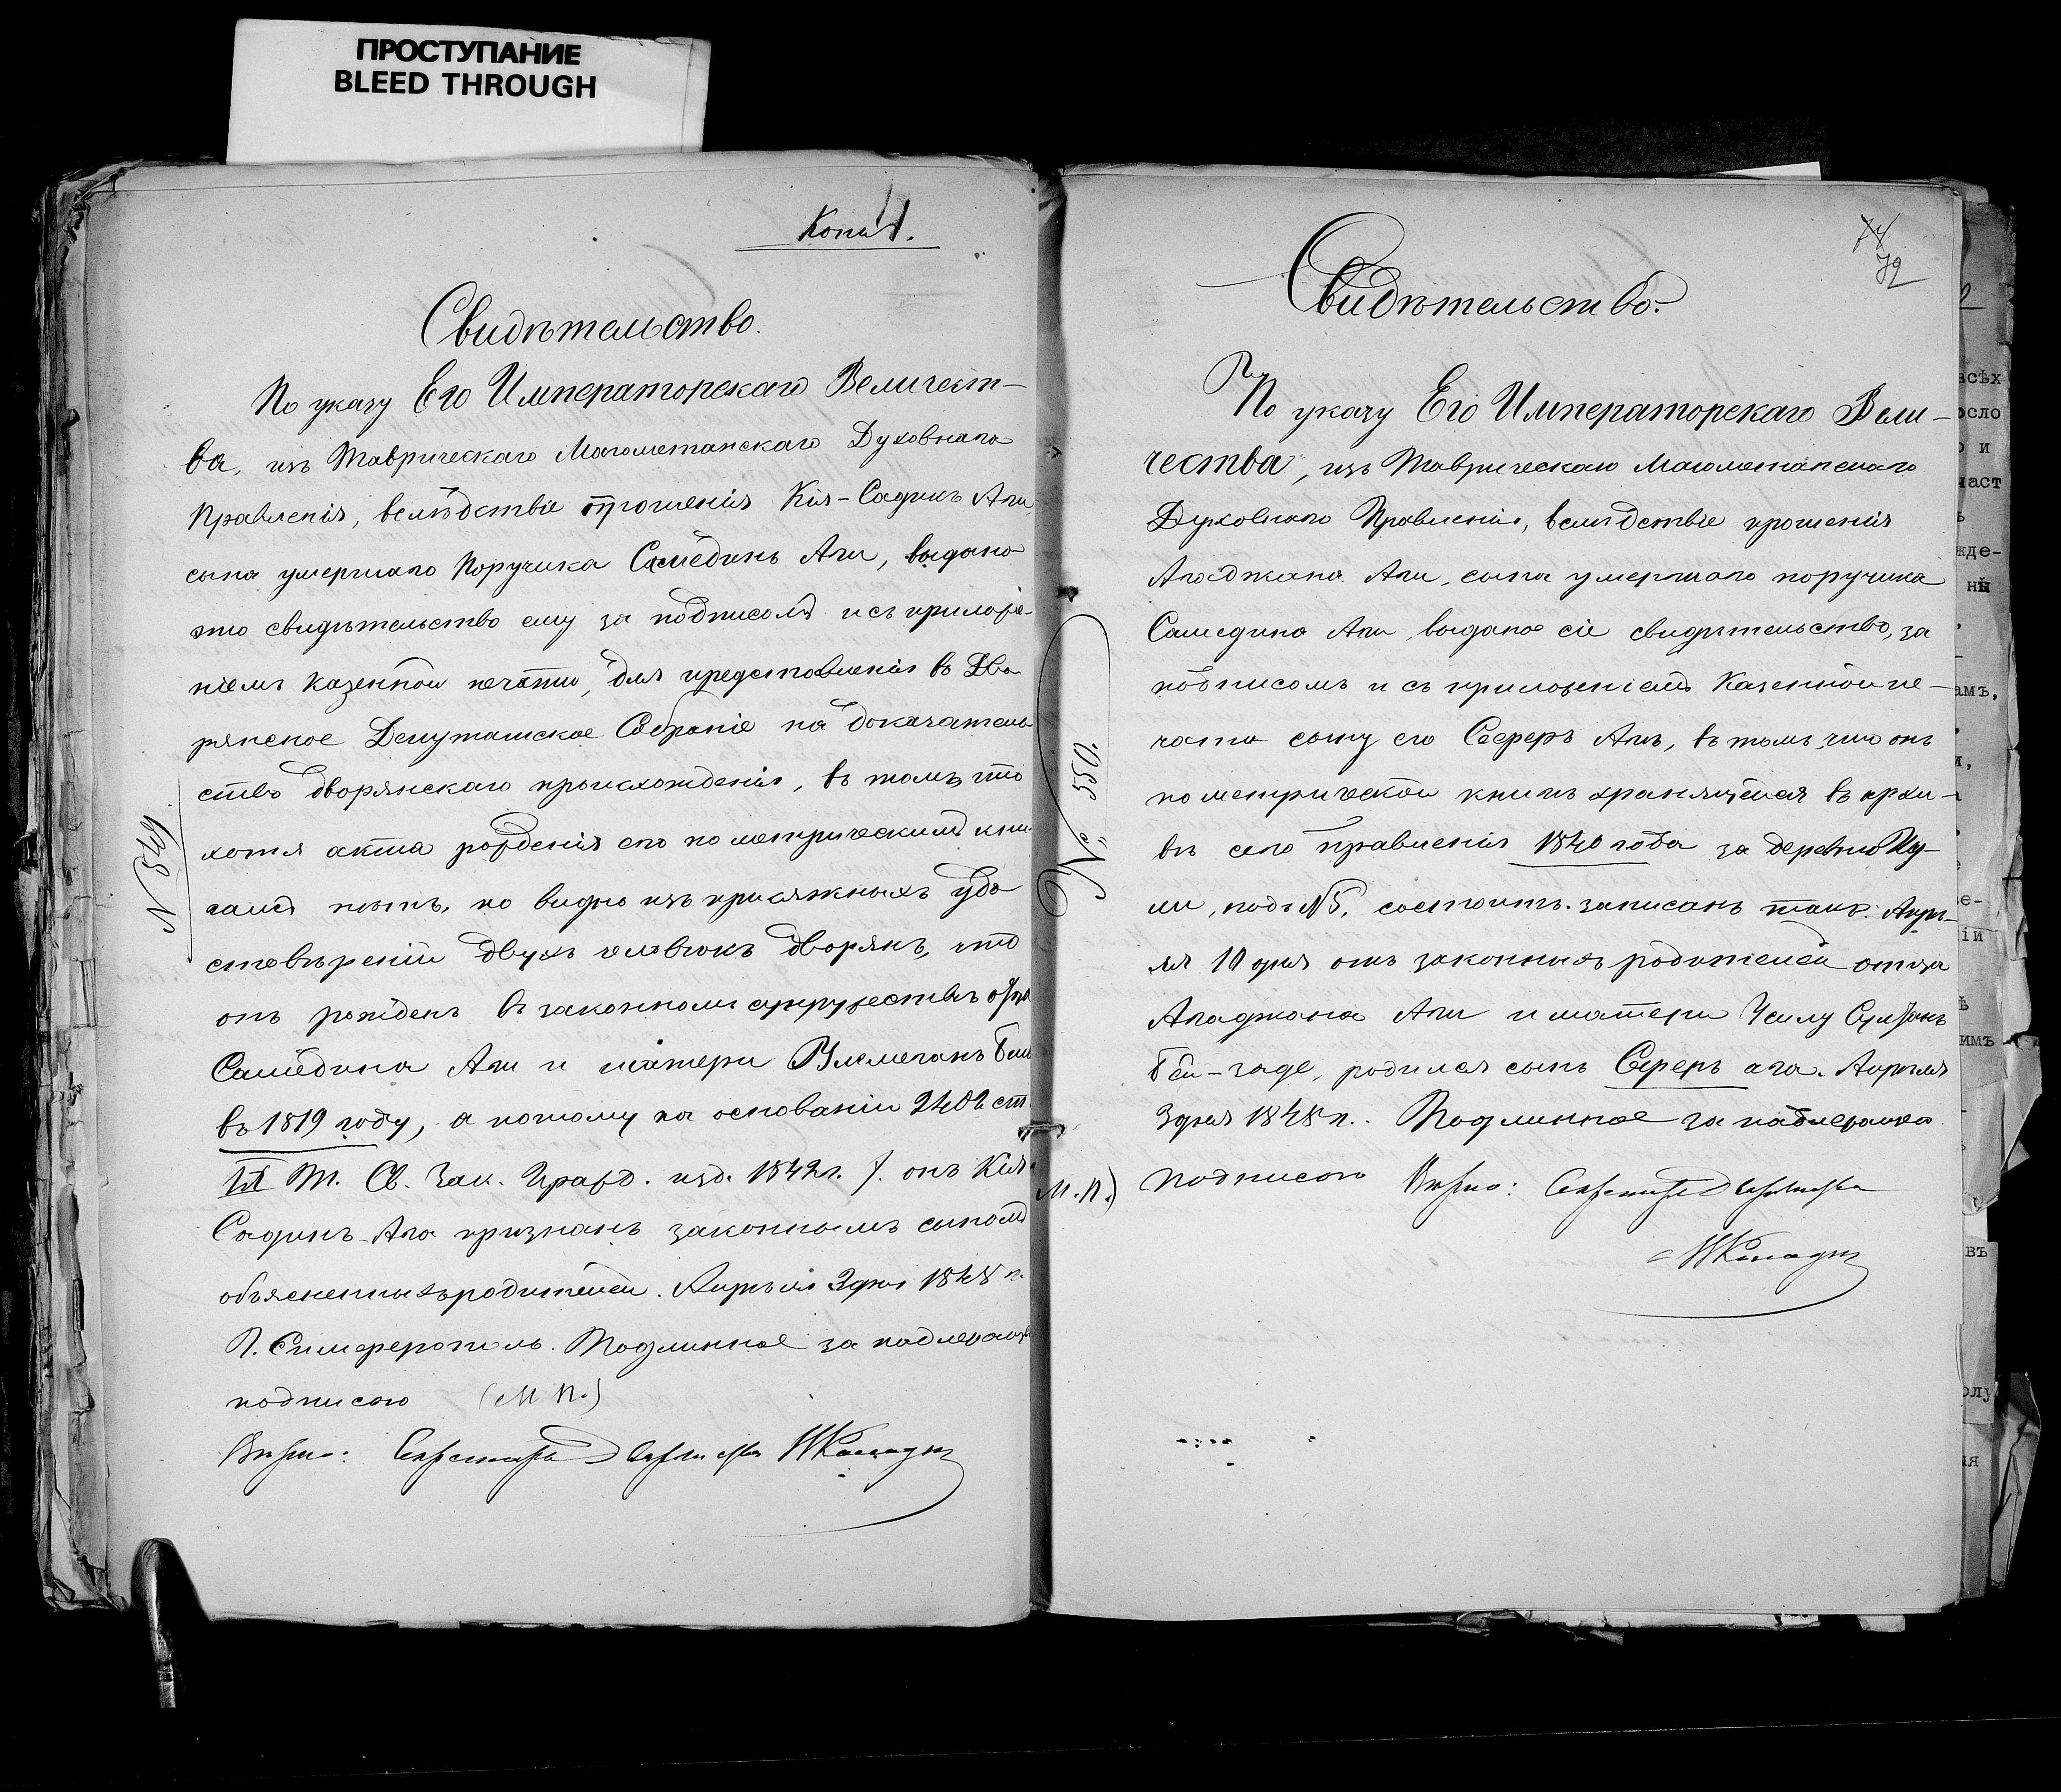 ПРОСТУПАНИЕ
BLEED THROUGH
Копія.
Свидѣтельство.
По указу Его Императорскаго Величест-
ва, изъ Таврическаго Магометанскаго Духовнаго
Правленія, вслѣдствіе прошенія Кія-Садикъ Аги,
сына умершаго Поручика Самединъ Аги, выдано
это свидѣтельство ему за подписомъ и съ приложе-
ніемъ казенной печати, для представленія въ Дво
рянское Депутатское Собраніе на доказатель
ство дворянскаго происхожденія, въ томъ, что
хотя акта рожденія его по метрическимъ кни
гамъ нѣтъ, но видно изъ присяжныхъ удо
стовѣреній двухъ человѣкъ дворянъ, что
онъ рожденъ въ законномъ супружествѣ отца
Самедина Аги и матери
въ 1819 году, а потому на основаніи 2402 ст.
Т. Св. Зак. Гражд. изд. 1842 г. онъ Кія
Садикъ Ага признанъ законнымъ сыномъ
объясненныхъ родителей. Апрѣля 3 дня 1848 г.
Г. Симферополь. Подлинное за надлежащ
подписою (М. П.)
Вѣрно: Секретарь Дворянства
№ 549
72
Свидѣтельство.
По указу Его Императорскаго Вели-
чества, изъ Таврическаго Магометанскаго
Духовнаго Правленія, вслѣдствіе прошенія
Агаджана Аги, сына умершаго поручика
Самедина Аги, выдано сіе свидѣтельство, за
подписомъ и съ приложеніемъ Казенной пе-
чати сыну его Сеферъ Аги, въ томъ, что онъ
по метрической книгѣ хранящейся въ архи-
вѣ сего Правленія 1840 года за деревню
подъ №5, состоитъ записанъ такъ: Апрѣ-
ля 10 дня отъ законныхъ родителей отца
Агаджана Аги и матери Султанъ
Бей-заде, родился сынъ Сеферъ ага. Апрѣля
3 дня 1848 г. Подлинное за надлежащею
М. П.) подписою Вѣрно: Секретарь Дворянства
№ 550.